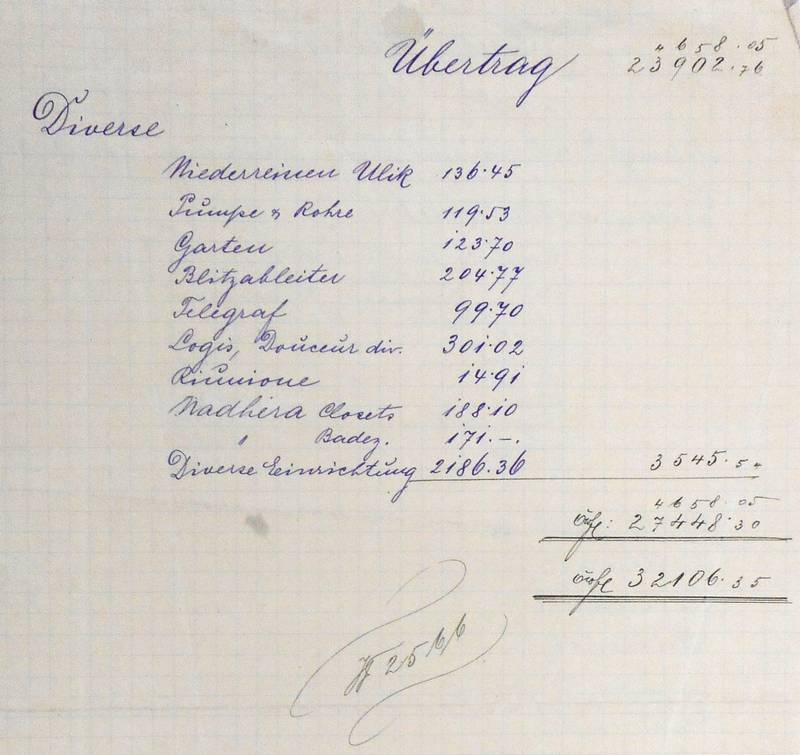 4658.05
Übertrag 23902.76
Diverse
Niederreinen Ulik 136.45
Pumpe & Rohre 119.53
Garten 123.70
Blitzableiter 204.77
Telegraf 99.70
Logis, Douceur div. 301.02
Riunione 14.91
Nadhera Closets 188.10
" Badez. 171.-.
Diverse Einrichtung 2186.36 3545.54
4658.05
27448.30
32106.35